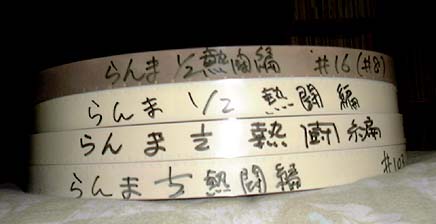 らんま 1/2 熱闘編 #16(#8)
らんま 1/2 熱闘編
らんま 1/2 熱闘編
らんま 1/2 熱闘編